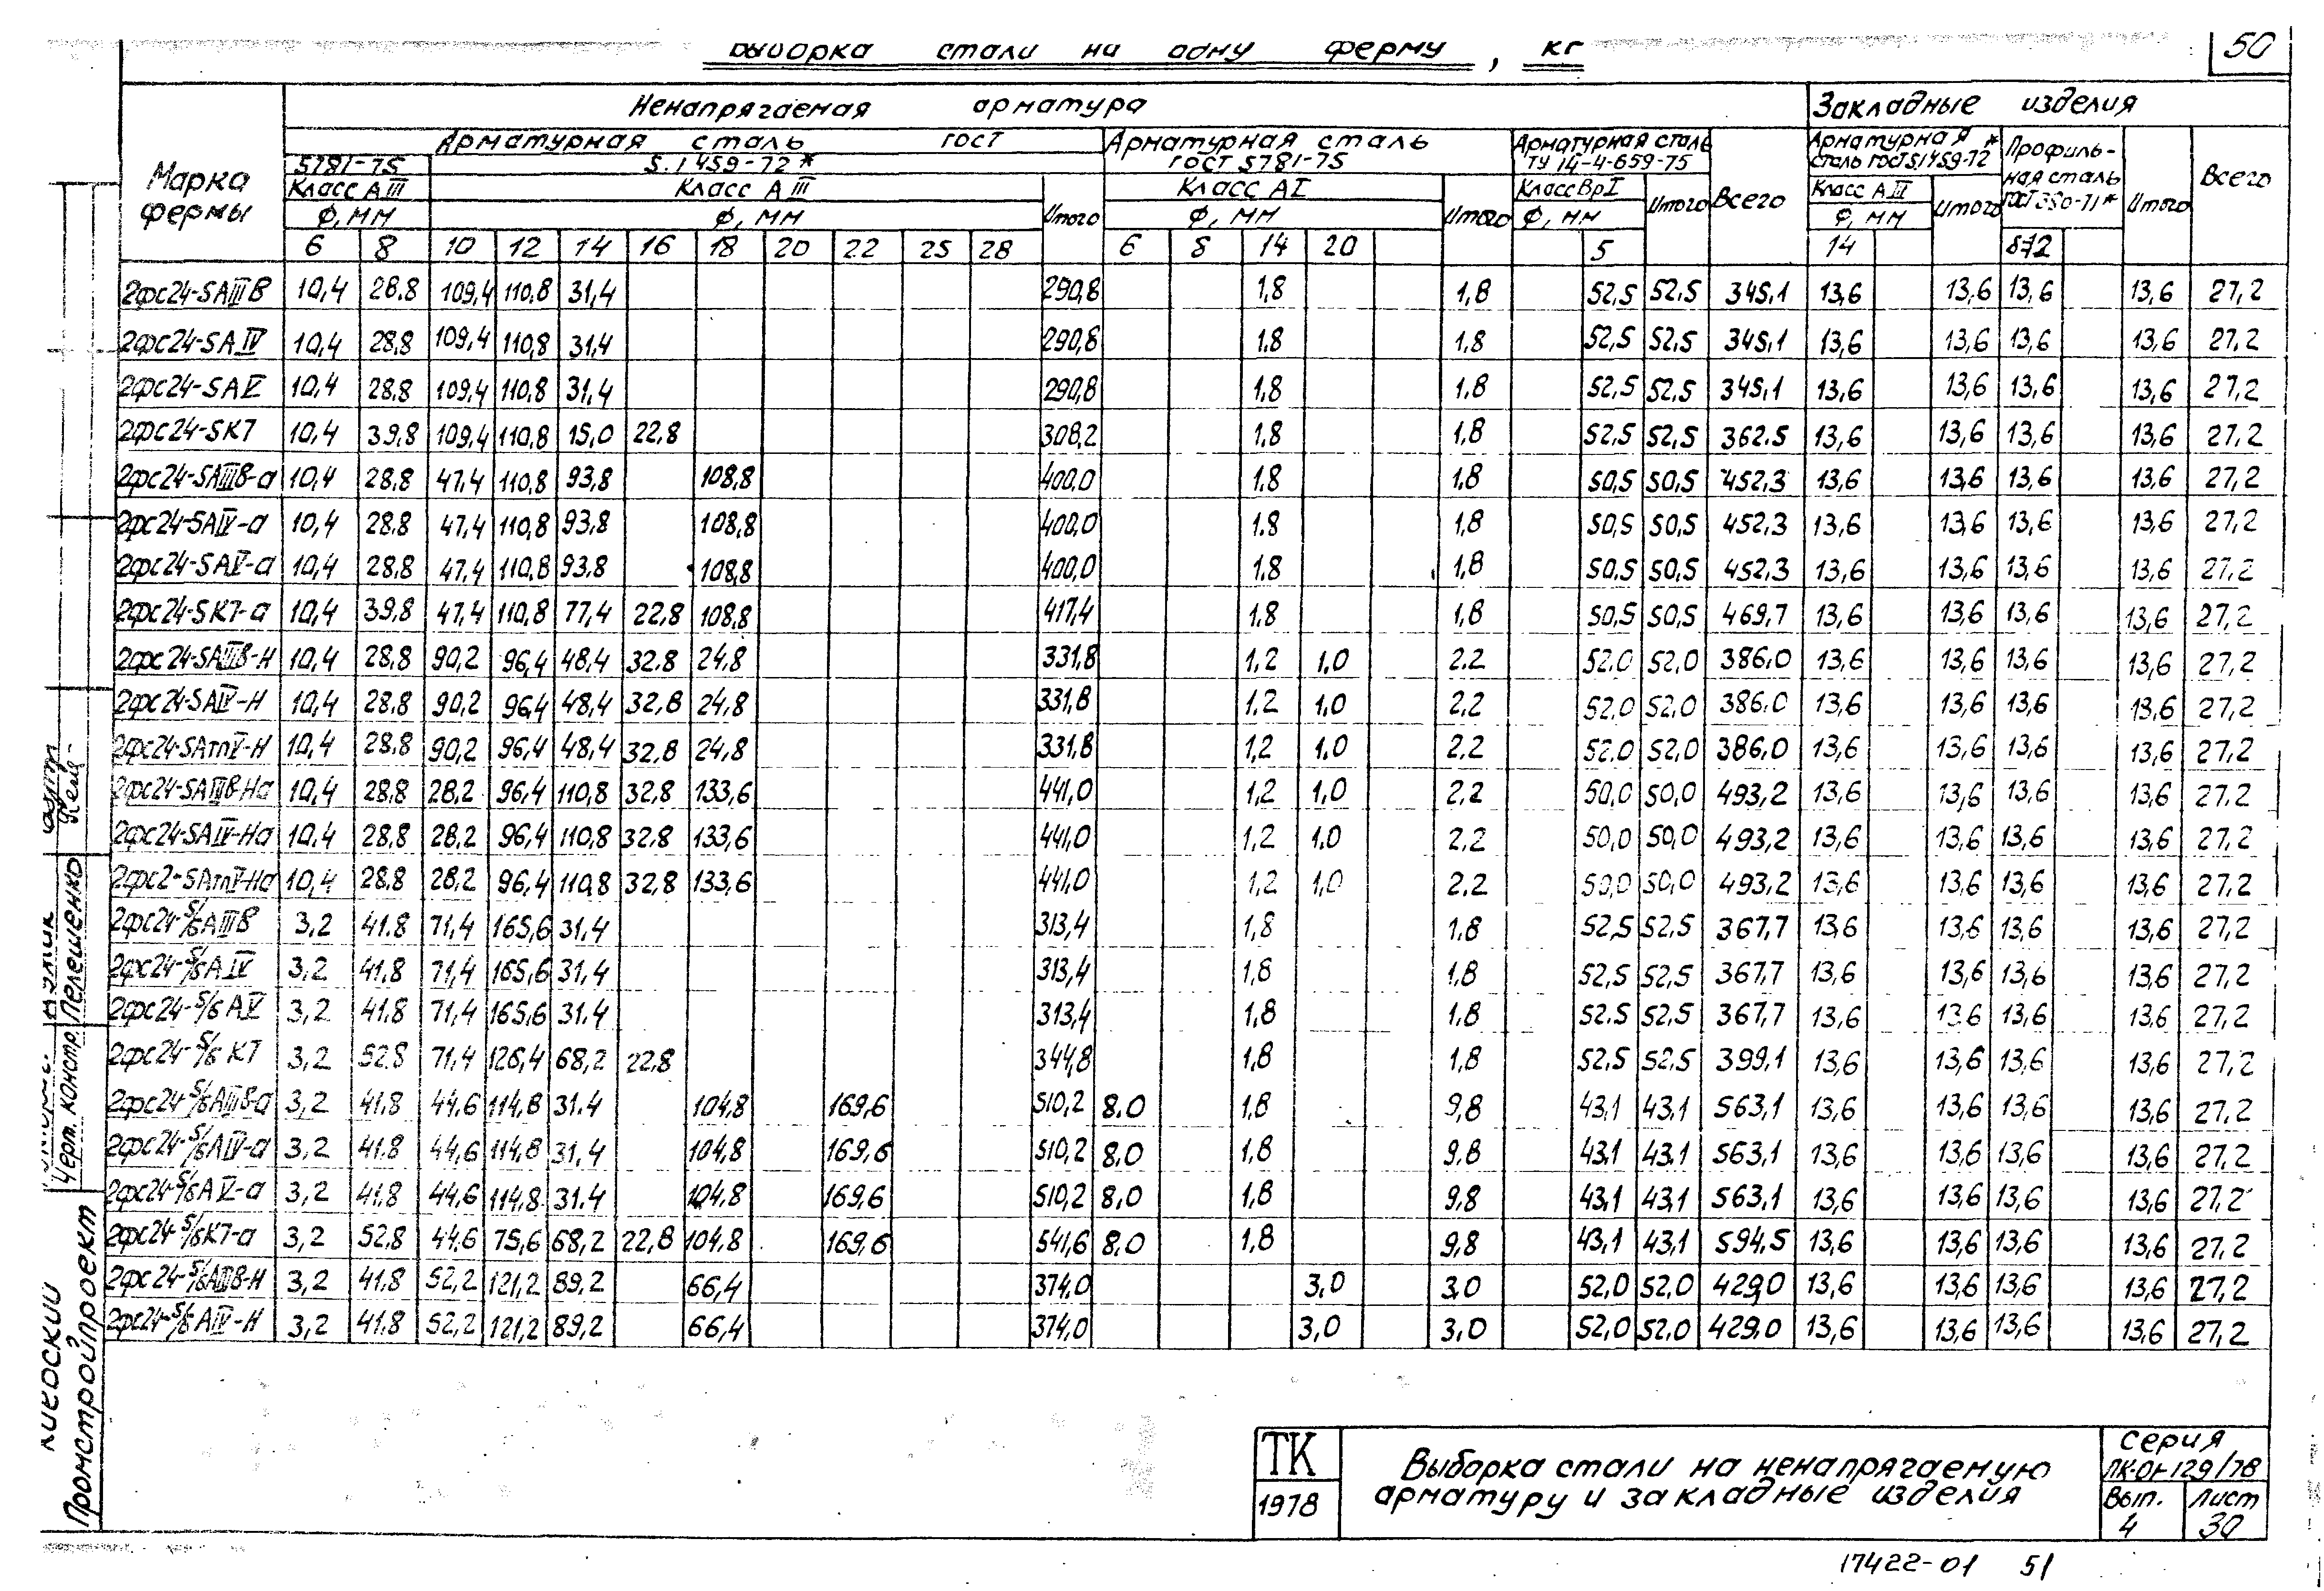 Выборка стали на одну ферму, кг
50
Марка фермы
Ненапрягаемая арматура
Закладные изделия
Арматурная сталь ГОСТ
Арматурная сталь ГОСТ 5781-75
Арматурная сталь ТУ 14-4-659-75
Всего
Арматурная сталь ГОСТ 5.1459-72*
Профильная сталь ГОСТ 380-71*
Итого
Всего
5781-75
5.1459-72*
Класс АIII
Класс АIII
Итого
Класс АI
Итого
Класс ВрI
Итого
Класс АIII
Итого
ф, мм
ф, мм
ф, мм
ф, мм
ф, мм
6 8 10 12 14 16 18 20 22 25 28 6 8 14 20 5 14
2фс24-5АIIIВ 10,4 28.8 109,4 110,8 31,4 290,8 1,8 1,8 52,5 52,5 345,1 13,6 13,6 13,6 13,6 27,2
2фс24-5АIV 10,4 28,8 109,4 110,8 31,4 290,8 1.8 1,8 52,5 52,5 345,1 13,6 13,6 13,6 13,6 27,2
2фс24-5АV 10,4 28,8 109,4 110,8 31,4 290,8 1.8 1,8 52,5 52,5 345,1 13,6 13,6 13,6 13,6 27,2
2фс24-5К7 10,4 39,8 109,4 110,8 15,0 22,8 308,2 1.8 1,8 52,5 52,5 362.5 13,6 13,6 13,6 13,6 27,2
2фс24-5АIIIВ-а 10,4 28,8 47,4 110,8 93,8 108,8 400,0 1.8 1.8 50,5 50,5 452,3 13,6 13,6 13,6 13,6 27,2
2фс24-5АIV-а 10,4 28,8 47,4 110,8 93,8 108,8 400,0 1.8 1,8 50,5 50,5 452,3 13,6 13,6 13,6 13,6 27,2
2фс24-5АV-а 10,4 28,8 47,4 110,8 93,8 108,8 400,0 1.8 1,8 50,5 50,5 452,3 13,6 13,6 13,6 13,6 27,2
2фс24-5К7-а 10,4 39,8 47,4 110,8 77,4 22,8 108,8 417,4 1.8 1,8 50,5 50,5 469,7 13,6 13,6 13,6 13,6 27,2
2фс24-5АIIIВ-Н 10,4 28,8 90,2 96,4 48,4 32.8 24,8 331,8 1,2 1,0 2.2 52.0 52,0 386,0 13,6 13,6 13,6 13,6 27,2
2фс24-5АIV-Н 10,4 28,8 90,2 96,4 48,4 32,8 24,8 331,8 1,2 1,0 2,2 52,0 52,0 386,0 13,6 13,6 13,6 13,6 27,2
2фс24-5АтпV-Н 10,4 28,8 90,2 96,4 48,4 32,8 24,8 331,8 1,2 1,0 2,2 52,0 52,0 386,0 13,6 13,6 13,6 13,6 27,2
2фс24-5АIIIВ-На 10,4 28,8 28,2 96,4 110,8 32,8 133,6 441,0 1,2 1,0 2,2 50,0 50,0 493,2 13,6 13,6 13,6 13,6 27,2
2фс24-5АIV-На 10,4 28,8 28,2 96,4 110,8 32,8 133,6 441,0 1,2 1,0 2,2 50,0 50,0 493,2 13,6 13,6 13,6 13,6 27,2
2фс2-5АтпV-На 10,4 28,8 28,2 96,4 110,8 32,8 133,6 441,0 1,2 1,0 2,2 50,0 50,0 493,2 13,6 13,6 13,6 13,6 27,2
2фс24-5/6АIIIВ 3,2 41.8 71,4 165,6 31,4 313,4 1,8 1.8 52,5 52,5 367,7 13,6 13,6 13,6 13,6 27,2
2фс24-5/6АIV 3,2 41,8 71,4 165,6 31,4 313,4 1,8 1,8 52,5 52,5 367,7 13,6 13,6 13,6 13,6 27,2
2фс24-5/6АV 3,2 41.8 71,4 165,6 31.4 313,4 1,8 1,8 52,5 52,5 367,7 13,6 13,6 13,6 13,6 27,2
2фс24-5/6К7 3,2 52.8 71,4 126,4 68,2 22,8 344,8 1,8 1,8 52,5 52,5 399,1 13,6 13,6 13,6 13,6 27,2
2фс24-5/6АIIIВ-а 3,2 41.8 44,6 114,8 31.4 104,8 169,6 510,2 8.0 1,8 9,8 43,1 43,1 563,1 13,6 13,6 13,6 13,6 27,2
2фс24-5/6АIV-а 3,2 41.8 44,6 114,8 31,4 104,8 169,6 510,2 8,0 1,8 9,8 43,1 43,1 563,1 13,6 13,6 13,6 13,6 27,2
2фс24-5/6АV-а 3,2 41.8 44,6 114,8 31.4 104,8 169,6 510,2 8,0 1,8 9,8 43,1 43,1 563,1 13,6 13,6 13,6 13,6 27,2
2фс24-5/6К7-а 3,2 52,8 44.6 75,6 68,2 22,8 104,8 169,6 541,6 8.0 1,8 9,8 43,1 43,1 594,5 13,6 13,6 13,6 13,6 27,2
2фс24-5/6АIIIВ-Н 3,2 41.8 52,2 121,2 89,2 66,4 374,0 3,0 3,0 52,0 52,0 429,0 13,6 13,6 13,6 13,6 27,2
2фс24-5/6АIV-Н 3,2 41.8 52,2 121,2 89,2 66,4 374,0 3,0 3,0 52,0 52,0 429,0 13,6 13,6 13,6 13,6 27,2
Черт. констр. Пелешенко
Киевский
Промстройпроект
ТК
1978
Выборка стали на ненапрягаемую
арматуру и закладные изделия
Серия
ПК-01-129/78
Вып. Лист
4 30
17422-01 51